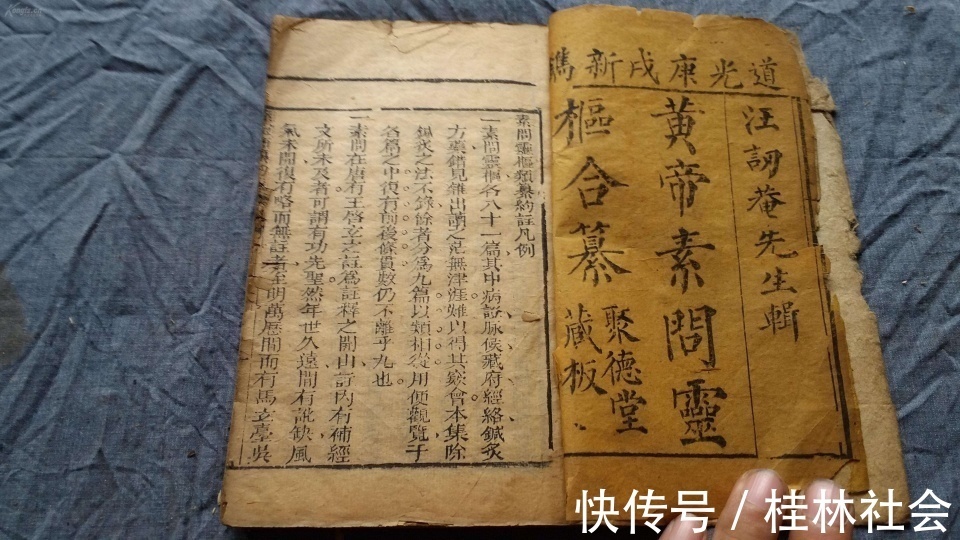 道光庚戌新鐫
汪訒菴先生輯
黃帝素問靈
樞合纂
聚德堂
藏板
素問靈樞類纂約註凡例
一素問靈樞各八十一篇其中病證脉候藏府經絡鍼灸
方藥錯見雜出讀之茫無津涯難以得其窾會本集除
鍼灸之法不錄餘者分爲九篇以類相從用便觀覽于
各篇之中復有前後條貫數仍不離乎九也
一素問在唐有王啓玄之註爲註釋之開山註內有補經
文所未及者可謂有功先聖然年世久遠間有訛缺風
氣未開復有略而無註者至明萬歷間而有馬玄臺吳
快传号 / 桂林社会